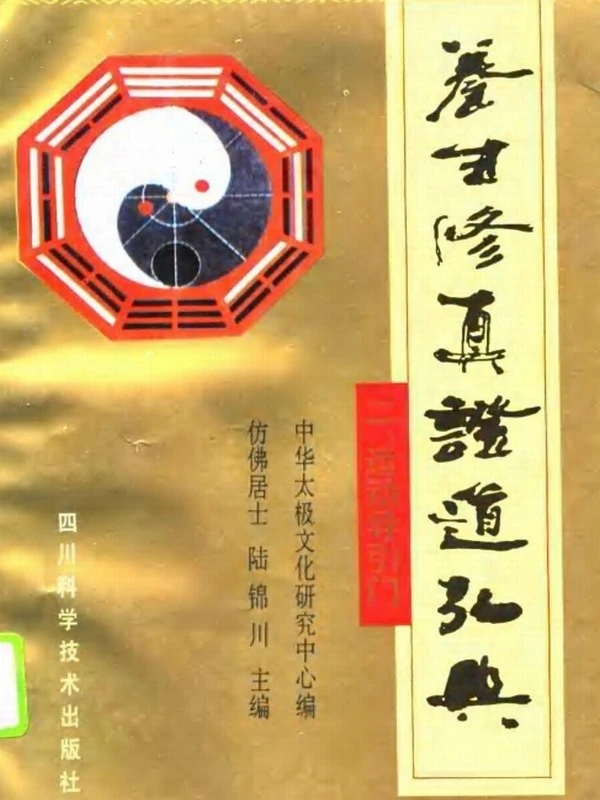 養生修真證道弘典
二、运动导引门
中华太极文化研究中心编
仿佛居士 陆锦川 主编
四川科学技术出版社